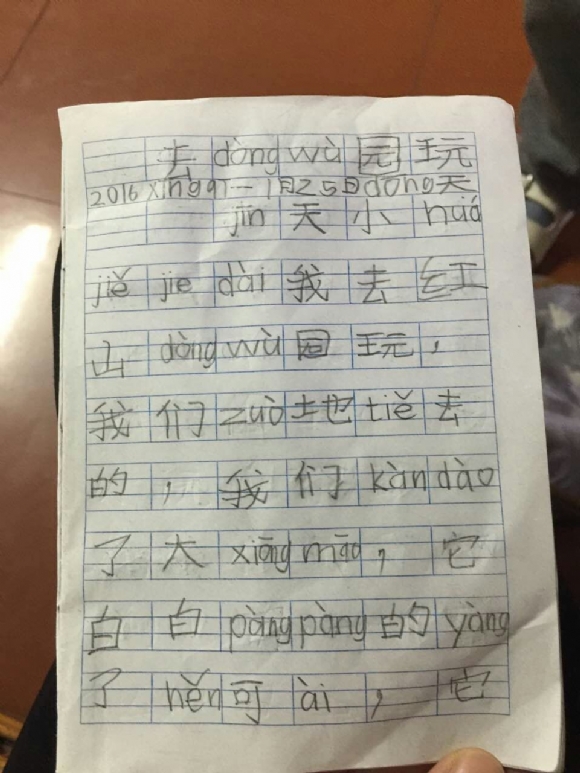 去dòngwù园玩
2016xīngqī一1月25日dōng天
jīn天小huá
jiějiedài我去红
山dòngwù园玩，
我们zuò地tiě去
的，我们kàndào
了大xiāngmāo，它
白白pàngpàng的yàng
了hěn可ài，它